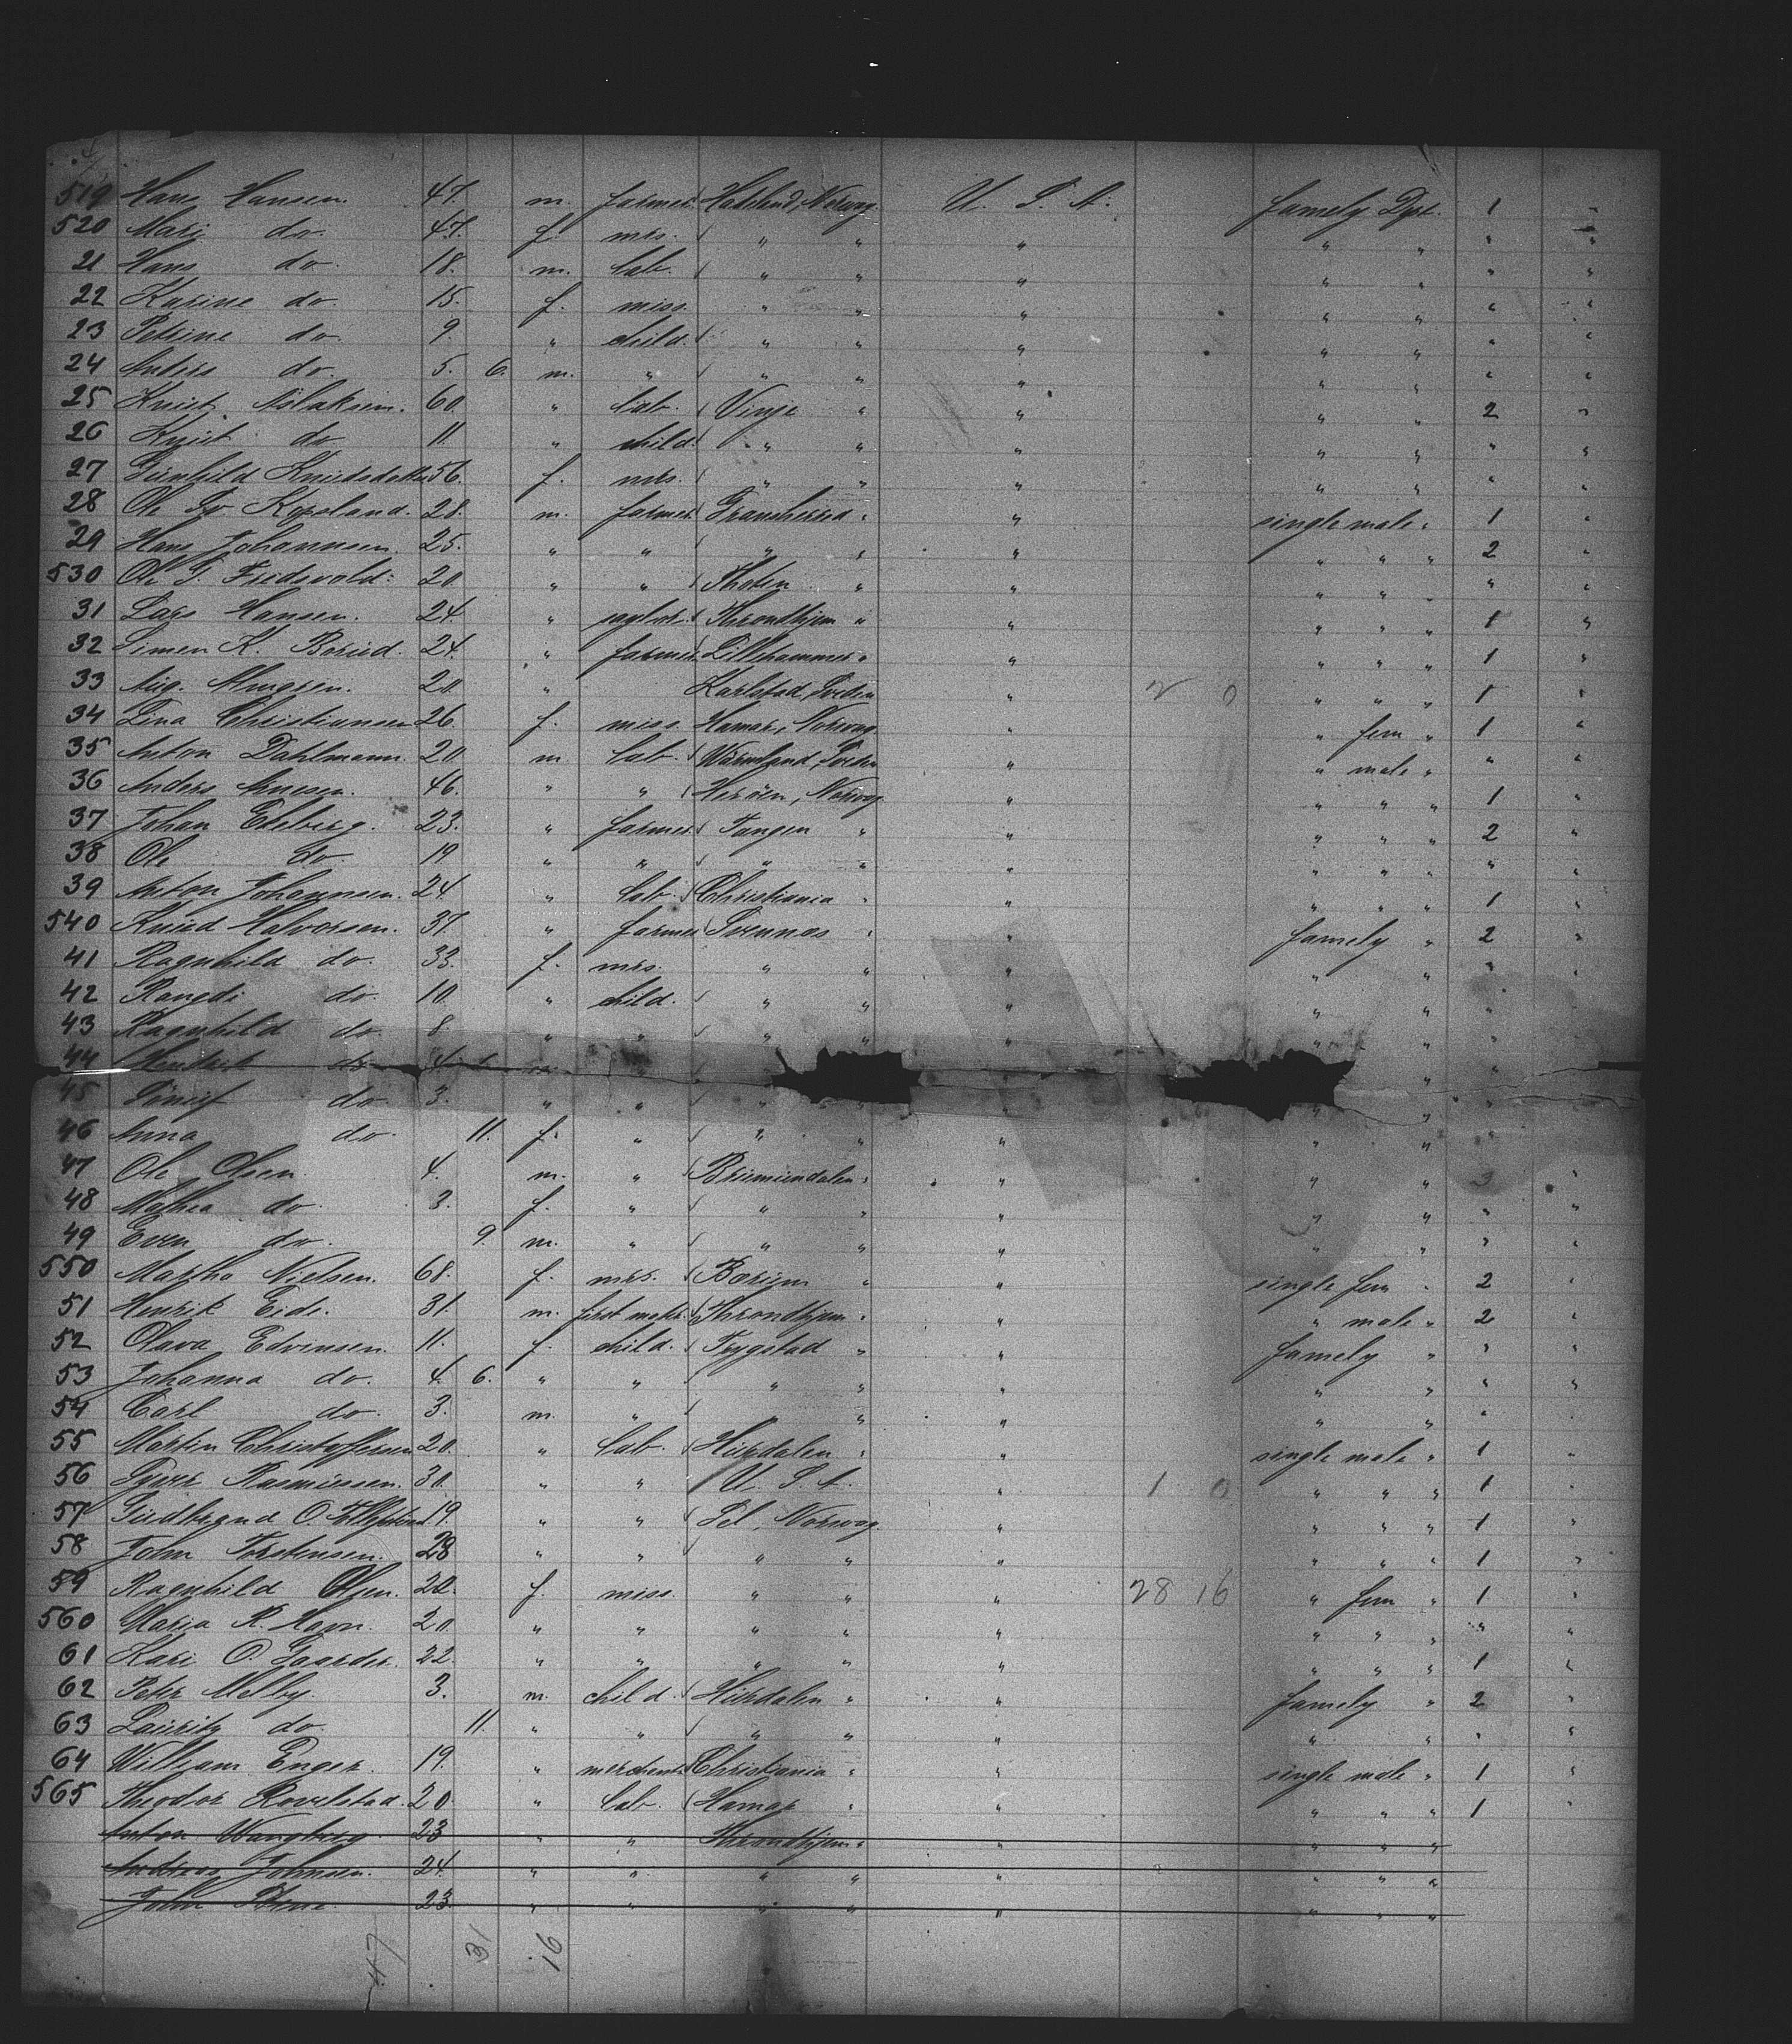 519 Hans Hansen. 47. m. farmer. Hadeland, Norway. U. S. A. famely Dpt. 1 "
520 Mari do. 47. f. mrs. " " " " " " "
21 Hans do. 18. m. lab. " " " " " " "
22 Karine do. 15. f. miss. " " " " " " "
23 Petrine do. 9. " child. " " " " " " "
24 do. 5. 6. m. " " " " " " " "
25 Knut Aslaksen. 60. " lab. Vinje " " " " 2 "
26 Knut do 11 " child. " " " " " " "
27 Gunhild Knudsdatter 56. f. mrs. " " " " " " "
28 Ole 28. m. farmer Gransherred " " single male " 1 "
29 Hans Johannsen. 25. " " " " " " " " 2 "
530 Ole 20. " " Thoten " " " " " " "
31 Lars Hansen. 24. " Throndhjem " " " " " 1 "
32 Simen K. 24. " farmer Lillehammer " " " " " 1 "
33 Aug. 20 " Karlstad, Sveden " 2 0 " " " 1 "
34 Lina Christiansen 26. f. miss. Hamar, Norway. " " fem " 1 "
35 Anton Dahlmann. 20 m lab. Wärmland, Sveden " " male " " "
36 Anders 46. " " Norway. " " " " 1 "
37 Johan Edelberg. 23. " farmer Tangen " " " " " 2 "
38 Ole do. 19 " " " " " " " " " "
39 Anton Johannsen. 24 " lab. Christiania " " " " " 1 "
540 Knud Halvorsen. 37. " farmer " " famely " 2 "
41 Ragnhild do. 33. f. mrs. " " " " " " "
42 Rangdi do. 10. " child. " " " " " " "
43 Ragnhild do. 8. " " " " " " " " "
44 do 4 "
45 do. 3. " " " " " " "
46 Anna do. 11. f. " " " " " "
47 Ole Olsen 4. m. " " " " " 3 "
48 Mathea do. 3. f. " " " " " " " "
49 Even do. 9. m. " " " " " " " "
550 Martha Nielsen. 68. f. mrs. Bærum " " single fem " 2 "
51 Henrik Eide. 31. m. first mate. Throndhjem " " " male " 2 "
52 Olava Edvensen. 11. f. child. Trygstad " " famely " " "
53 Johanna do. 4. 6. " " " " " " " " "
54 Carl do. 3. m. " " " " " " " "
55 Martin Christoffersen 20. " lab. Hurdalen " " single male " 1 "
56 Rasmussen. 30. " " U. S. A. " 1 0 " " " 1 "
57 Gudbrand O. 19. " " Sel, Norway. " " " " 1 "
58 John Torstensen. 28 " " " " " " " " 1 "
59 Ragnhild Olsen. 22. f. miss. " " " 28 16 " fem " 1 "
560 Maria R. Havn. 20. " " " " " " " " " "
61 Kari O. Gaarder. 22. " " " " " " " " 1 "
62 Peter Melby. 3. m. child. Hurdalen " " famely " 2 "
63 Lauritz do. 11. " " " " " " " " "
64 William Enger. 19. " merchant Christiania " " single male " 1 "
565 Theodor Ravelstad. 20. " lab. Hamar " " " " " 1 "
Anton Wangberg. 23 " " Throndhjem " " " " "
Andreas Johnsen. 24. " " " " " " " "
John 23. " " " " " " " "
47 31 16